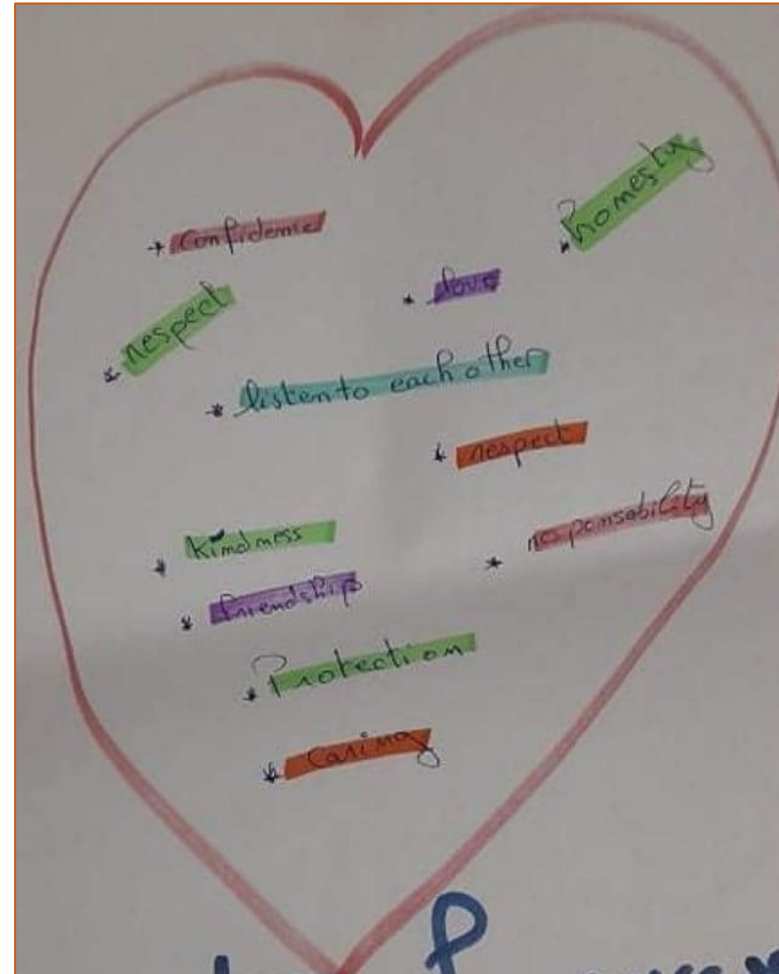 * Confidence
* honesty
* love
* respect
* listen to each other
* respect
* responsability
* kindness
* friendship
* Protection
* Caring